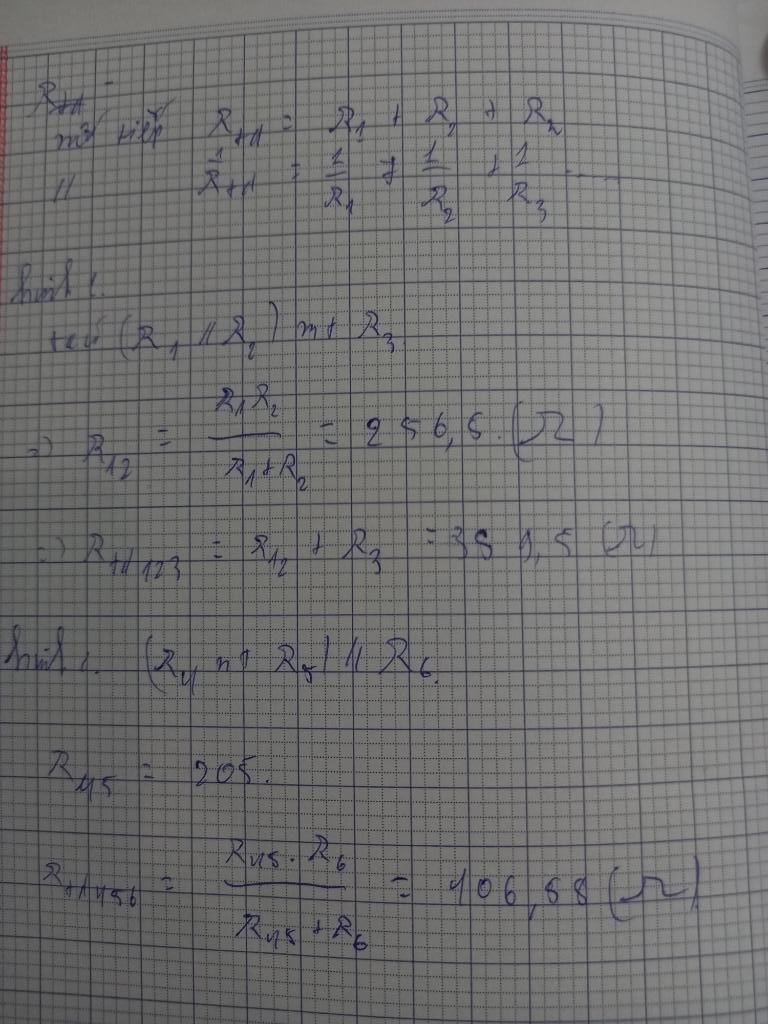 Rtđ
nối tiếp Rtđ = R1 + R2 + R2
// 1/Rtđ = 1/R1 + 1/R2 + 1/R3 ......
hình 1.
(R1 // R2) nt R3
=> R12 = R1R2 / R1+R2 = 256,5. (Ω)
=> Rtđ123 = R12 + R3 = 389,5 (Ω)
hình 2. (R4 nt R5) // R6.
R45 = 205.
Rtđ456 = R45 . R6 / R45 + R6 = 106,88 (Ω)